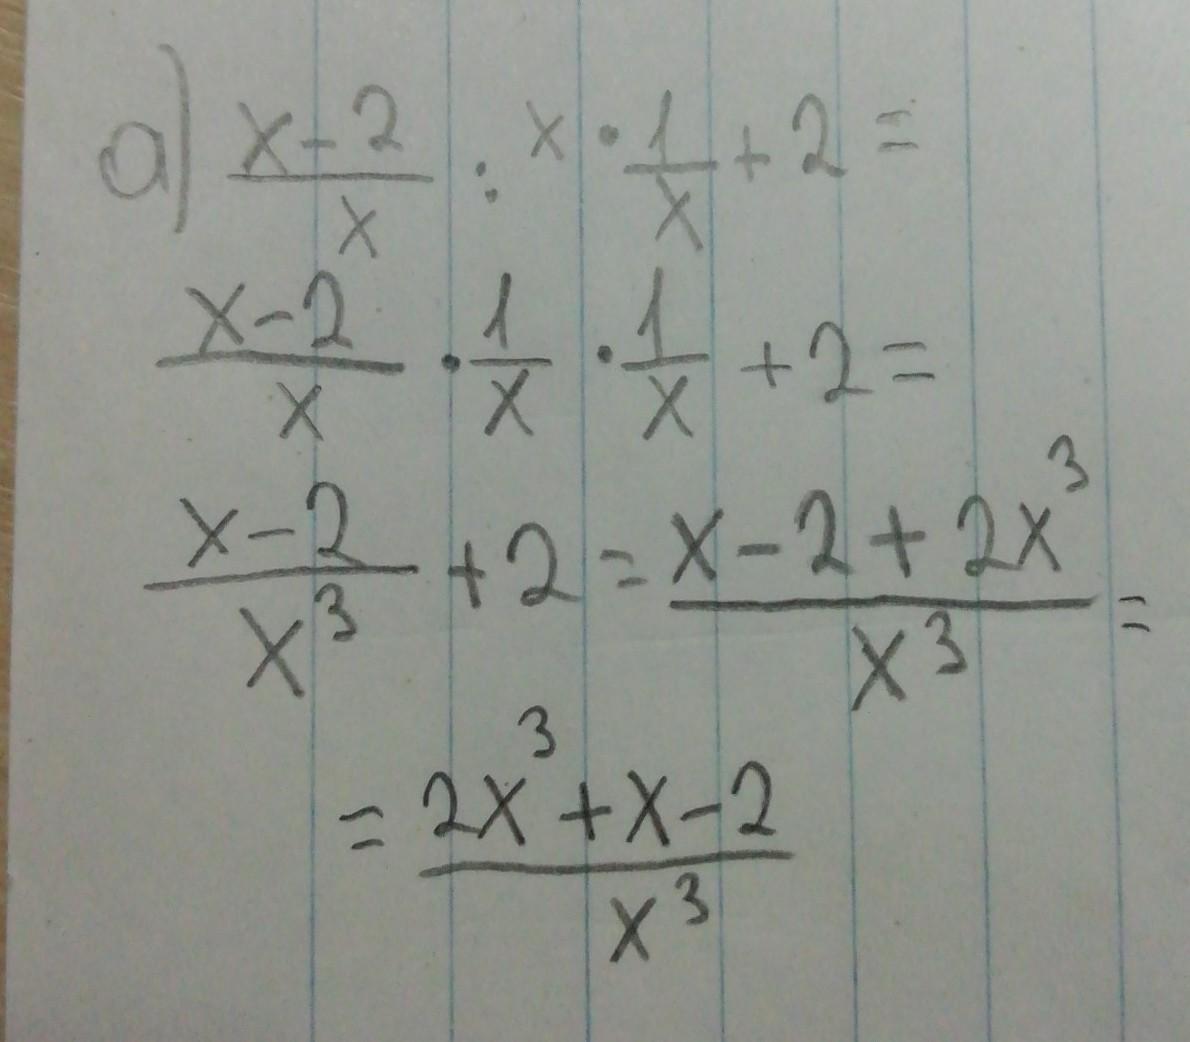 a) \frac{x-2}{x} : x \cdot \frac{1}{x} + 2 =
\frac{x-2}{x} \cdot \frac{1}{x} \cdot \frac{1}{x} + 2 =
\frac{x-2}{x^3} + 2 = \frac{x-2+2x^3}{x^3} =
= \frac{2x^3+x-2}{x^3}